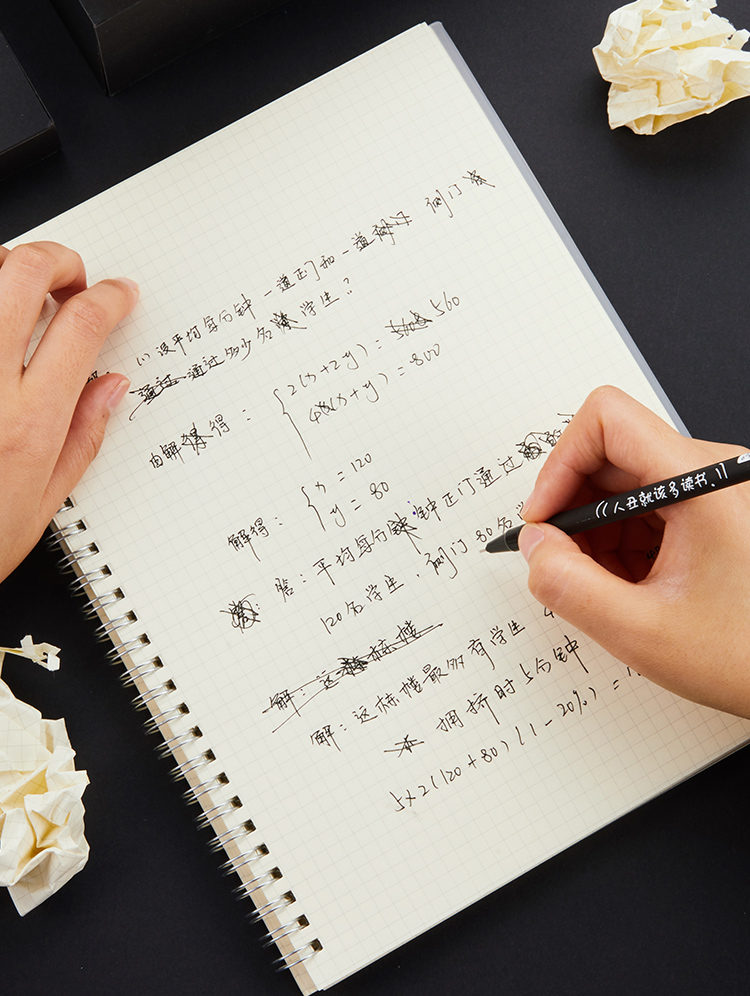 (1)设平均每分钟一道正门和一道侧门
通过多少名学生?
由解得: { 2(x+2y)=560
4(x+y)=800
解得: { x=120
y=80
答:平均每分钟正门通过
120名学生,侧门80名学
解:这栋楼
解:这栋楼最多有学生 4
拥挤时5分钟
5×2(120+80)(1-20%)=1
((人丑就该多读书.))